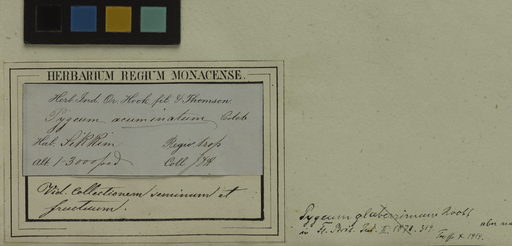 HERBARIUM REGIUM MONACENSE.
Herb. Ind. Or. Hook. fil. & Thomson.
Pygeum acuminatum Colebr
Hab. Sikkim Regio trop.
Alt. 1-3000 ped Coll. JDH
Vid. Collectionem seminum et
fructuum.
Pygeum glaberrimum Hook f.
in Fl. Brit. Ind. II 1878. 319